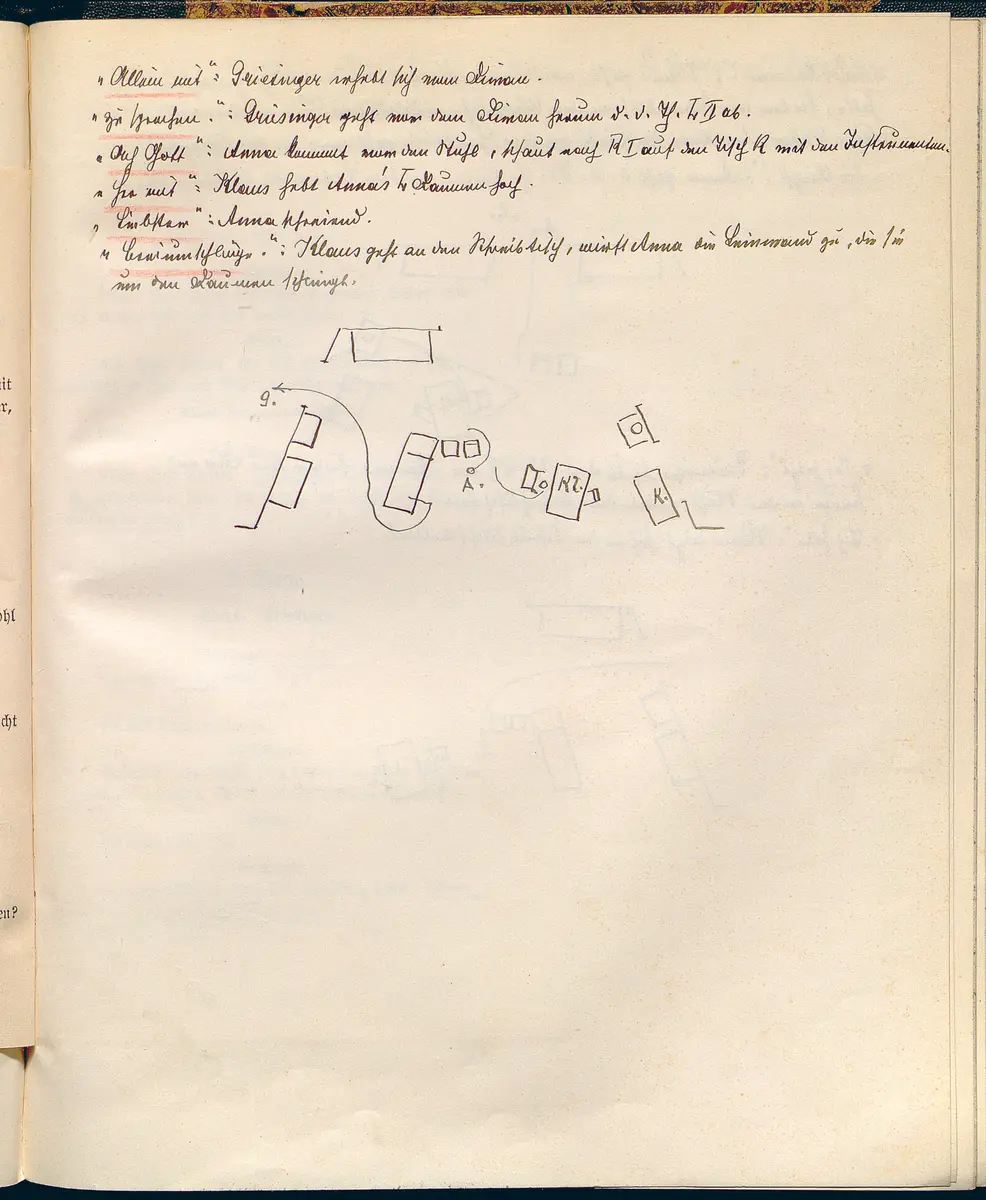 „Allein mit“: Griesinger erhebt sich vom Divan.
„zu sprechen.“: Griesinger geht vor dem Divan herum d. d. Th. L II ab.
„Ach Gott“: Anna kommt vor den Stuhl, schaut nach R I auf den Tisch R mit den Instrumenten.
„Her mit“: Klaus hebt Anna's L Daumen hoch.
„Liebster“: Anna schreiend.
„Breiumschläge.“: Klaus geht an den Schreibtisch, wirft Anna die Leinwand zu, die sie
um den Daumen schlingt.
g.
A.
Kl.
K.
it
r,
ohl
cht
en?